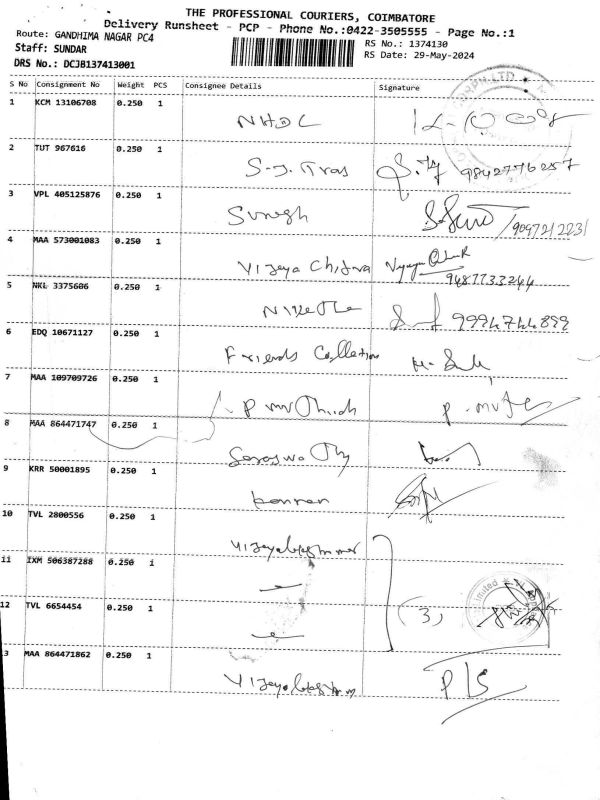 THE PROFESSIONAL COURIERS, COIMBATORE
Delivery Runsheet - PCP - Phone No.:0422-3505555 - Page No.:1
Route: GANDHIMA NAGAR PC4
RS No.: 1374130
Staff: SUNDAR
RS Date: 29-May-2024
DRS No.: DCJB137413001
S No Consignment No Weight PCS Consignee Details Signature
1 KCM 13106708 0.250 1
NHDC
2 TUT 967616 0.250 1
S.J. Tras 9842776257
3 VPL 405125876 0.250 1
Suresh
4 MAA 573001083 0.250 1
Vijaya Chitra
9487733244
5 NKL 3375606 0.250 1
Nivetha 9994744899
6 EDQ 10671127 0.250 1
Friends Collection
7 MAA 109709726 0.250 1
P
8 MAA 864471747 0.250 1
Saraswathy
9 KRR 50001895 0.250 1
Kannan
10 TVL 2800556 0.250 1
11 IXM 506387288 0.250 1
12 TVL 6654454 0.250 1
(3)
13 MAA 864471862 0.250 1